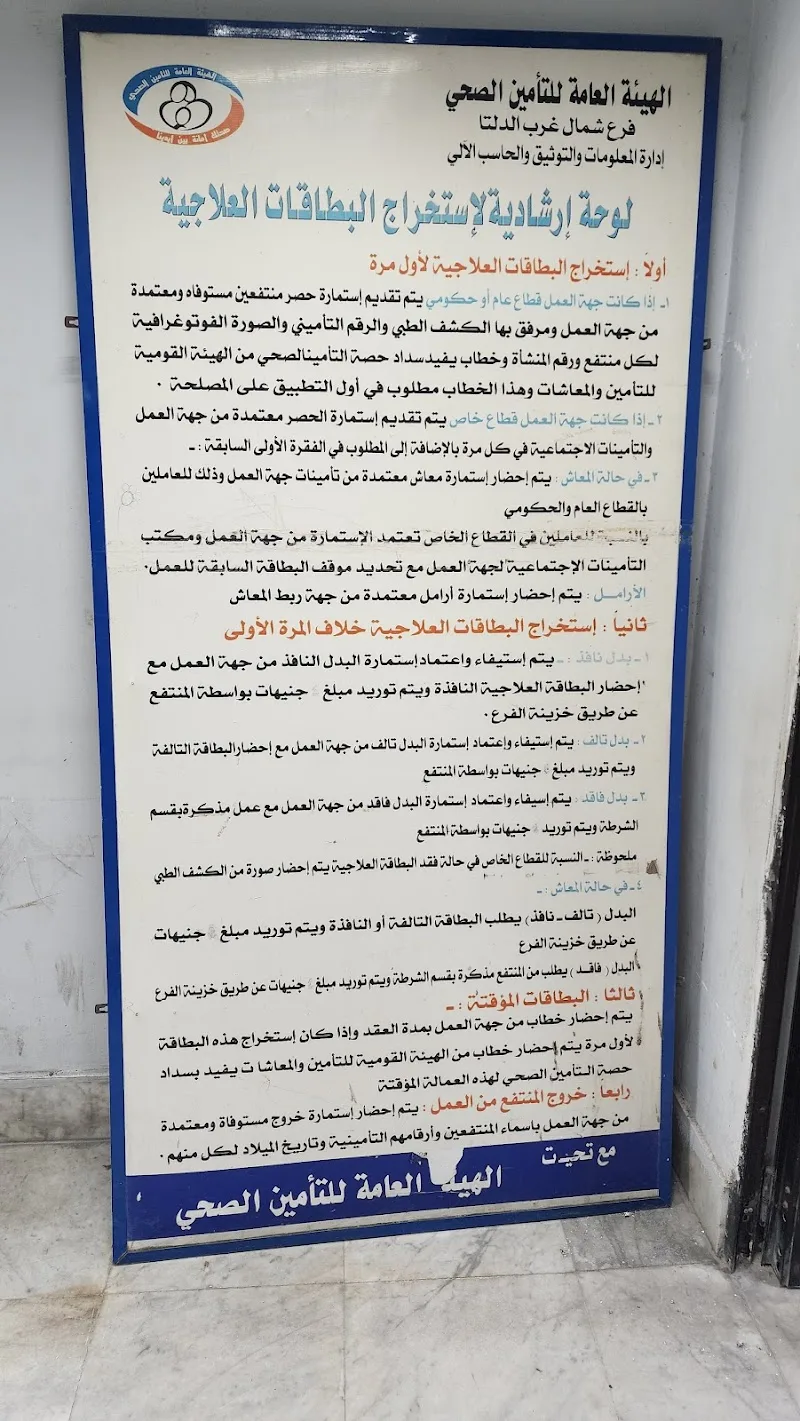 الهيئة العامة للتأمين الصحي
صحتك أمانة بين أيدينا
الهيئة العامة للتأمين الصحي
فرع شمال غرب الدلتا
إدارة المعلومات والتوثيق والحاسب الآلي
لوحة إرشادية لإستخراج البطاقات العلاجية
أولاً : إستخراج البطاقات العلاجية لأول مرة
١- إذا كانت جهة العمل قطاع عام أو حكومي يتم تقديم إستمارة حصر منتفعين مستوفاه ومعتمدة
من جهة العمل ومرفق بها الكشف الطبي والرقم التأميني والصورة الفوتوغرافية
لكل منتفع ورقم المنشأة وخطاب يفيد سداد حصة التأمين الصحي من الهيئة القومية
للتأمين والمعاشات وهذا الخطاب مطلوب في أول التطبيق على المصلحة .
٢- إذا كانت جهة العمل قطاع خاص يتم تقديم إستمارة الحصر معتمدة من جهة العمل
والتأمينات الاجتماعية في كل مرة بالإضافة إلى المطلوب في الفقرة الأولى السابقة : -
٣- في حالة المعاش : يتم إحضار إستمارة معاش معتمدة من تأمينات جهة العمل وذلك للعاملين
بالقطاع العام والحكومي
بالنسبة للعاملين في القطاع الخاص تعتمد الإستمارة من جهة العمل ومكتب
التأمينات الإجتماعية لجهة العمل مع تحديد موقف البطاقة السابقة للعمل.
الأرامل : يتم إحضار إستمارة أرامل معتمدة من جهة ربط المعاش
ثانياً : إستخراج البطاقات العلاجية خلاف المرة الأولى
١- بدل نافذ : - يتم إستيفاء واعتماد إستمارة البدل النافذ من جهة العمل مع
إحضار البطاقة العلاجية النافذة ويتم توريد مبلغ جنيهات بواسطة المنتفع
عن طريق خزينة الفرع .
٢- بدل تالف : يتم إستيفاء وإعتماد إستمارة البدل تالف من جهة العمل مع إحضار البطاقة التالفة
ويتم توريد مبلغ جنيهات بواسطة المنتفع
٣- بدل فاقد : يتم إسيفاء واعتماد إستمارة البدل فاقد من جهة العمل مع عمل مذكرة بقسم
الشرطة ويتم توريد جنيهات بواسطة المنتفع
ملحوظة : - النسبة للقطاع الخاص في حالة فقد البطاقة العلاجية يتم إحضار صورة من الكشف الطبي
٤- في حالة المعاش : -
البدل ( تالف - نافذ ) يطلب البطاقة التالفة أو النافذة ويتم توريد مبلغ جنيهات
عن طريق خزينة الفرع
البدل ( فاقد ) يطلب من المنتفع مذكرة بقسم الشرطة ويتم توريد مبلغ جنيهات عن طريق خزينة الفرع
ثالثا : البطاقات المؤقتة : -
يتم إحضار خطاب من جهة العمل بمدة العقد وإذا كان إستخراج هذه البطاقة
لأول مرة يتم إحضار خطاب من الهيئة القومية للتأمين والمعاشات يفيد بسداد
حصة التأمين الصحي لهذه العمالة المؤقتة
رابعاً : خروج المنتفع من العمل : يتم إحضار إستمارة خروج مستوفاة ومعتمدة
من جهة العمل باسماء المنتفعين وأرقامهم التأمينية وتاريخ الميلاد لكل منهم .
مع تحيت
الهيئة العامة للتأمين الصحي